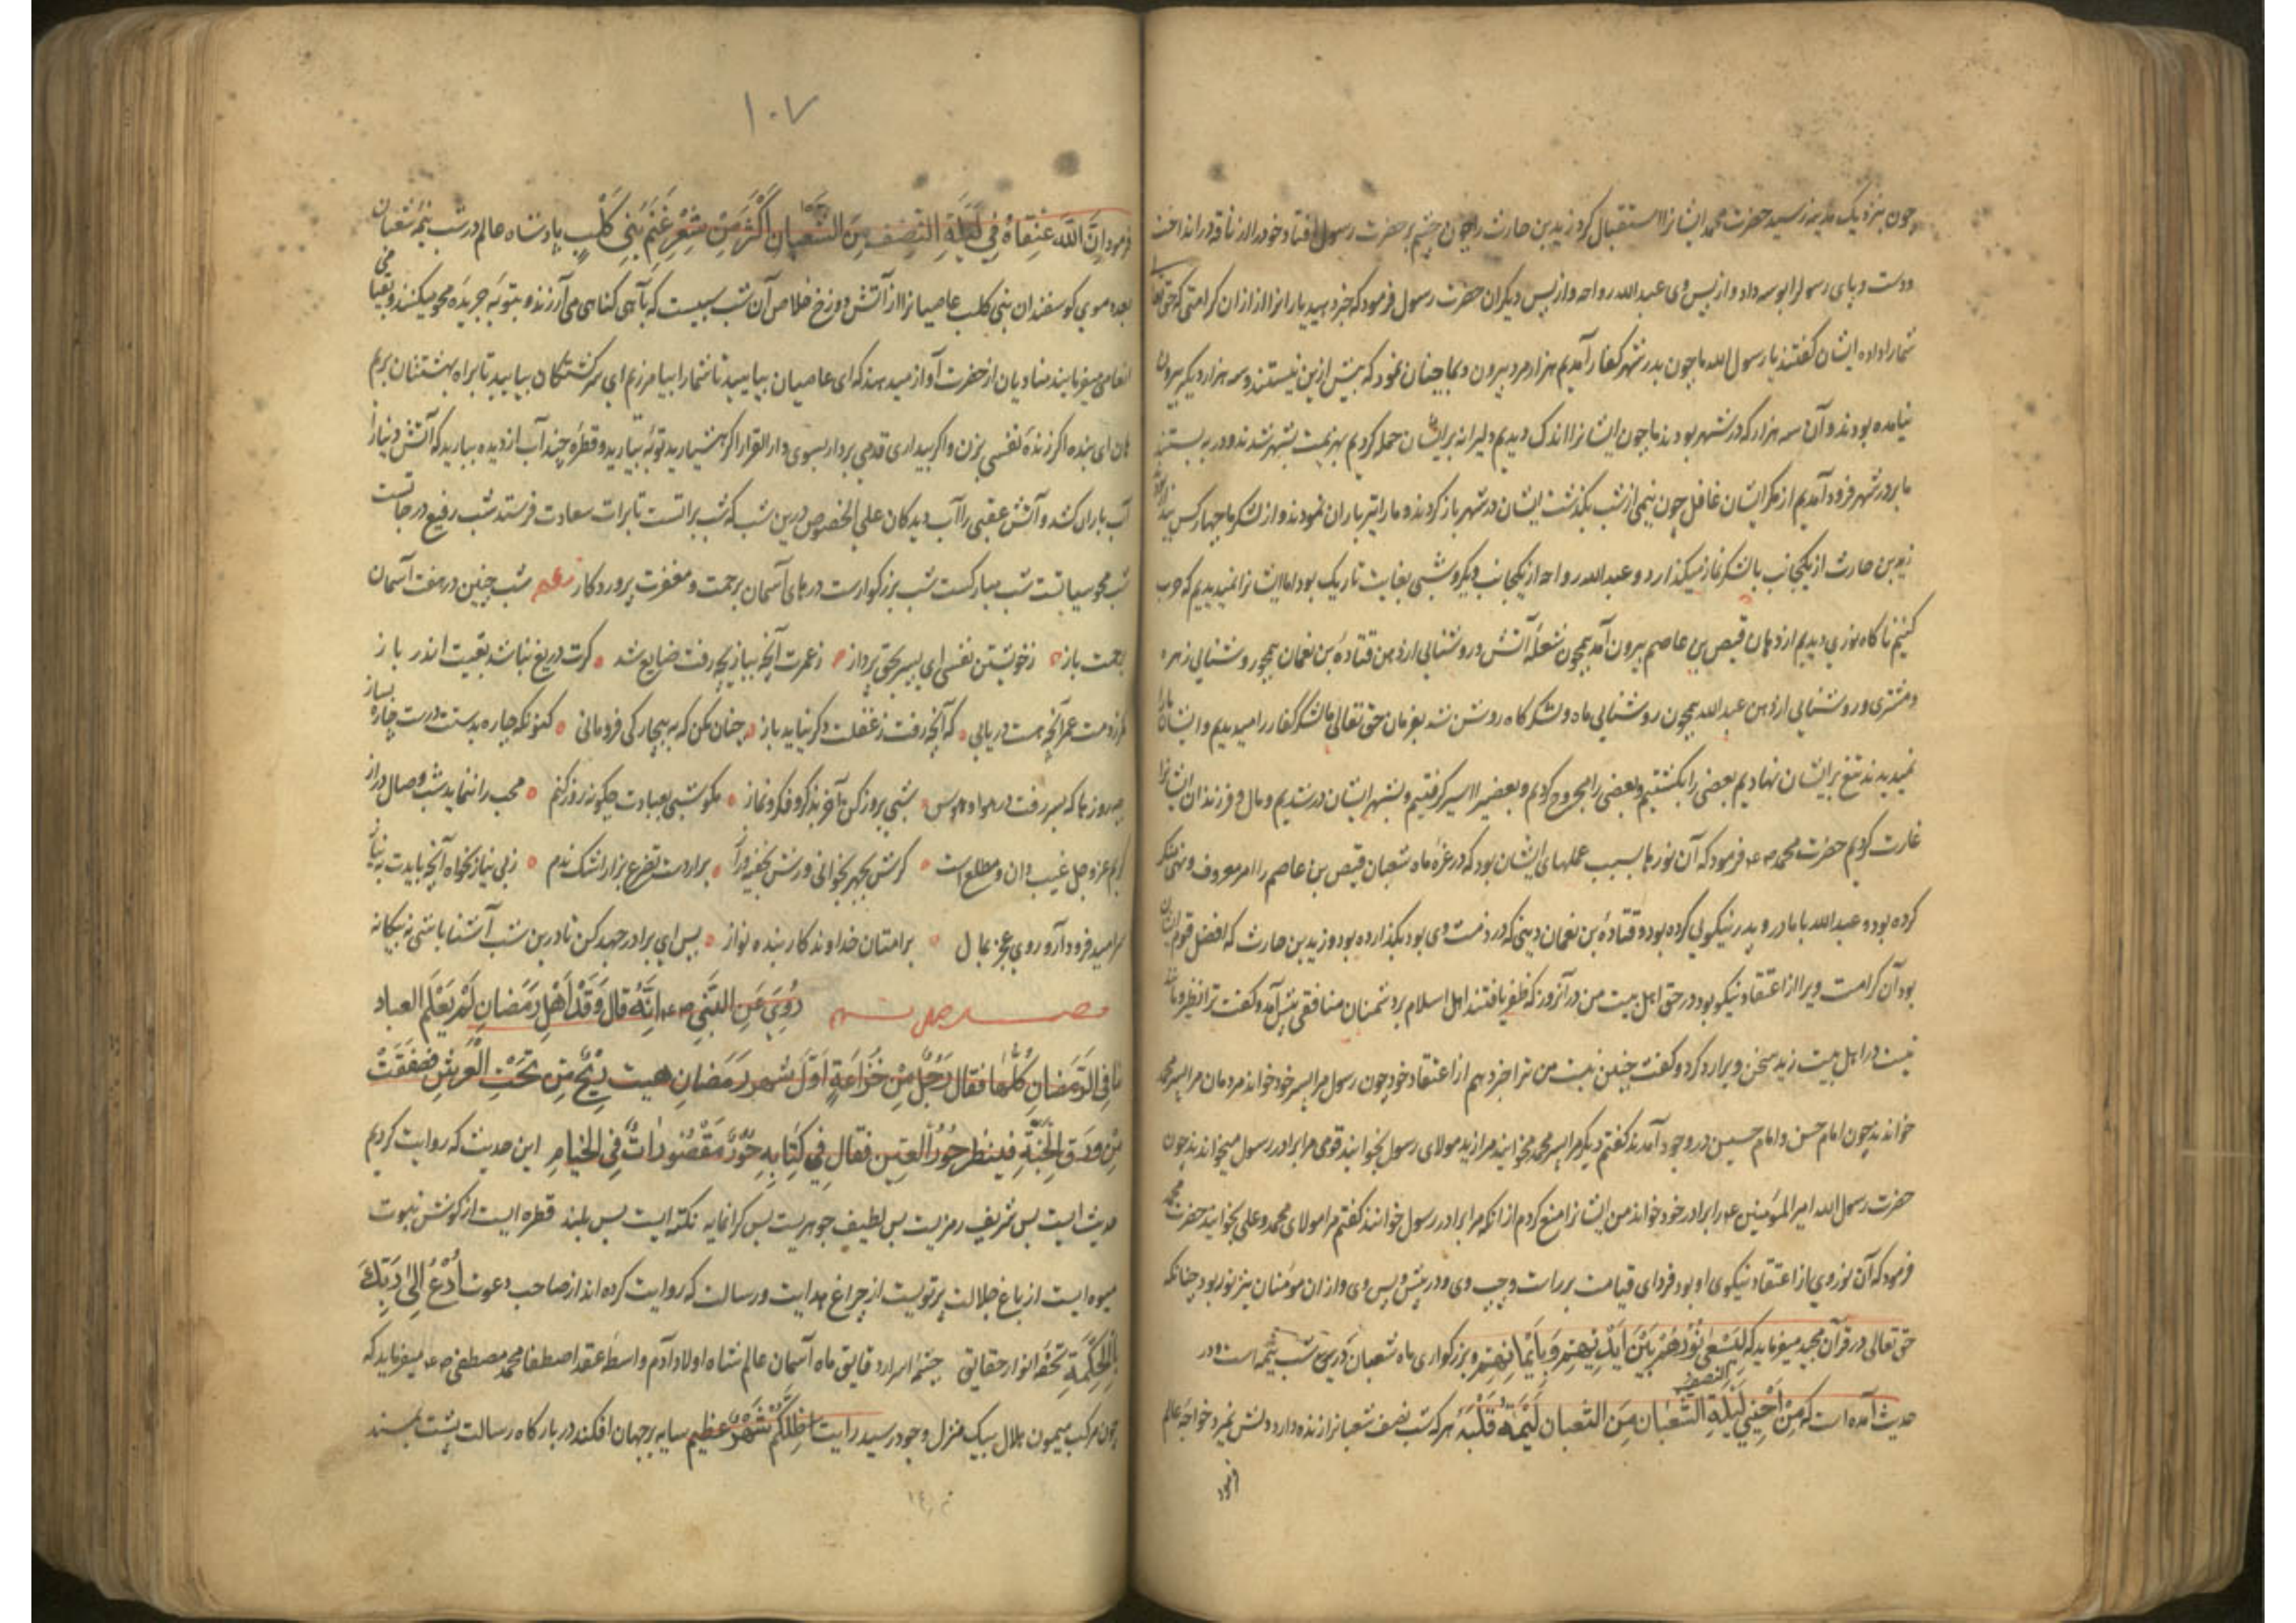 چون بنزدیک مدینه رسید حضرت محمد ایشانرا استقبال کرد زید بن حارث را چون چشم بر حضرت رسول افتاد خود را از ناقه در انداخت
و دست و پای رسول را بوسه داد و از پس وی عبد الله رواحه و از پس دیگران حضرت رسول فرمود که خبر دهید یارانرا از ان کرامتی که حق تعالی
شما را داده ایشان گفتند یا رسول الله ما چون بدر شهر کفار آمدیم هزار مرد بیرون و بما چنان نمود که بیش ازین نیستند و سه هزار دیگر بیرون
نیامده بودند و آن سه هزار که در شهر بودند ما چون ایشانرا اندک دیدیم دلیرانه بر ایشان حمله کردیم بهزیمت بشهر شدند و در به بستند
ما بر در شهر فرود آمدیم از مکر ایشان غافل چون نیمی از شب بگذشت ایشان در شهر باز کردند و ما را تیر باران نمودند و از لشکر ما چهار کس
زید بن حارث از یکجانب با لشکر نماز میگذارد و عبد الله رواحه از یکجانب دیگر و شبی بغایت تاریک بود اما ایشانرا نمیدیدیم که حرب
کنیم ناگاه نوری دیدیم از دهان قیص بن عاصم بیرون آمد همچون شعلهٔ آتش و روشنائی از دهن قتادهٔ بن نعمان همچو روشنائی زهره
و مشتری و روشنائی از دهن عبد الله همچون روشنائی ماه و لشکرگاه روشن شد بفرمان حق تعالی ما لشکر کفار را میدیدیم و ایشان ما را
نمیدیدند تیغ بر ایشان نهادیم بعضی را بکشتیم و بعضی را مجروح کردیم و بعضی را اسیر گرفتیم و بشهر ایشان در شدیم و مال و فرزندان ایشانرا
غارت کردیم حضرت محمد فرمود که آن نورها بسبب عملهای ایشان بود که در غرهٔ ماه شعبان قیص بن عاصم را امر معروف و نهی منکر
کرده بود و عبد الله با مادر و پدر نیکوئی کرده بود و قتادهٔ بن نعمان دینی که در ذمت وی بود بگذارده بود و زید بن حارث که افضل قوم ایشان
بود آن کرامت ویرا از اعتقاد نیکو بود در حق اهل بیت من در آنروز که ظفر یافتند اهل اسلام بر دشمنان منافقی پیش آمد و گفت ترا نظیر و مانند
نیست در اهل بیت زید سخن ویرا رد کرد و گفت چنین نیست من ترا خبر دهم از اعتقاد خود چون رسول مرا پسر خود خواند مردمان مرا پسر محمد
خواندند چون امام حسن و امام حسین در وجود آمدند گفتم دیگر مرا پسر محمد مخوانید مرا زید مولای رسول بخوانید قومی مرا برادر رسول میخواندند چون
حضرت رسول الله امیر المؤمنین را برادر خود خواند من ایشانرا منع کردم از آنکه مرا برادر رسول خوانند گفتم مرا مولای محمد و علی بخوانید حضرت محمد
فرمود که آن نور وی از اعتقاد نیکوی او بود فردای قیامت بر راست و چپ وی و در پیش و پس وی و از ان مومنان نیز نور بود چنانکه
حق تعالی در قرآن مجید میفرماید که لیسعی نورهم بین ایدیهم وبایمانهم و بزرگواری ماه شعبان در شب نیمه است و در
حدیث آمده است که من احیی لیلة النصف من الشعبان لم یمت قلبه هر که شب نصف شعبانرا زنده دارد دلش نمیرد و خواجهٔ عالم
فرمود
۱۰۷
فرمود ان الله عتقاء في ليلة النصف من الشعبان اكثر من شعر غنم بني كلب پادشاه عالم در شب نیمهٔ شعبان
بعدد موی گوسفندان بنی کلب عاصیانرا از آتش دوزخ خلاص آن شب شبیست که بآهی گناهی می آمرزند و بتوبهٔ جریدهٔ محو میکنند
انعامی میفرمایند منادیان از حضرت آواز میدهند که ای عاصیان بیایید تا شما را بیامرزم ای سرگشتگان بیایید تا براه بهشتتان برم
هان ای بنده اگر زندهٔ نفسی بزن و اگر بیداری قدمی بردار بسوی دار القرار اگر هشیارید توبهٔ بیارید و قطرهٔ چند آب از دیده ببارید که آتش دنیا را
آب باران کشد و آتش عقبی را آب دیدگان علی الخصوص درین شب که شب براتست تا برات سعادت فرستد شب رفیع درجاتست
شب محو سیاتست شب مبارکست شب بزرگوارست درهای آسمان برحمت و مغفرت پروردگار شعر شب چنین در هفت آسمان
برحمت باز ز خویشتن نفسی ای پسر بحق پرداز ز عمرت آنچه ببازیچه رفت ضایع شد گرت دریغ نباشد بقیت اندر باز
عمر آنچه هست دریابی که آنچه رفت ز غفلت دگر نیاید باز چنان مکن که به بیچارگی فرومانی کنونکه چاره بدستست درست چاره بساز
چه روزها که بسر رفت در هوا و هوس شبی بروز کن آخر بذکر و فکر و نماز مگو شبی بعبادت چگونه روز کنم محب را ننماید شب وصال دراز
کریم عز و جل غیب دان و مطلع است گرش بجهر بخوانی ورش بخفیه و راز برار دست تضرع ببار اشک ندم ز بی نیاز بخواه آنچه بایدت به نیاز
سر امید فرود آر و روی عجز بمال بر آستان خداوندگار بنده نواز پس ای برادر جهد کن تا درین شب آشنا باشی نه بیگانه
روي عن النبي انه قال وقد اهل رمضان لم يعلم العباد
ما في الرمضان كلها فقال رجل من خزاعة اول شهر رمضان هبت ريح من تحت العرش فصفقت
من ورق الجنة فينظر حور العين فقال في كتابه حور مقصورات في الخيام این حدیث که روایت کردیم
حدیث ایست بس شریف رمزیست بس لطیف جوهریست بس گرانمایه نکته ایست بس بلند قطره ایست از نبوت
میوه ایست از باغ جلالت پرتویست از چراغ هدایت و رسالت که روایت کرده اند از صاحب دعوت ادع الی ربك
بالحكمة تحفهٔ انوار حقایق چشمهٔ اسرار دقایق ماه آسمان عالم شاه اولاد آدم واسطهٔ عقد اصطفا محمد مصطفی میفرماید که
چون مرکب میمون هلال بیک منزل وجود رسید رایت اظلکم شهر عظیم سایه بر جهان افکند در بارگاه رسالت